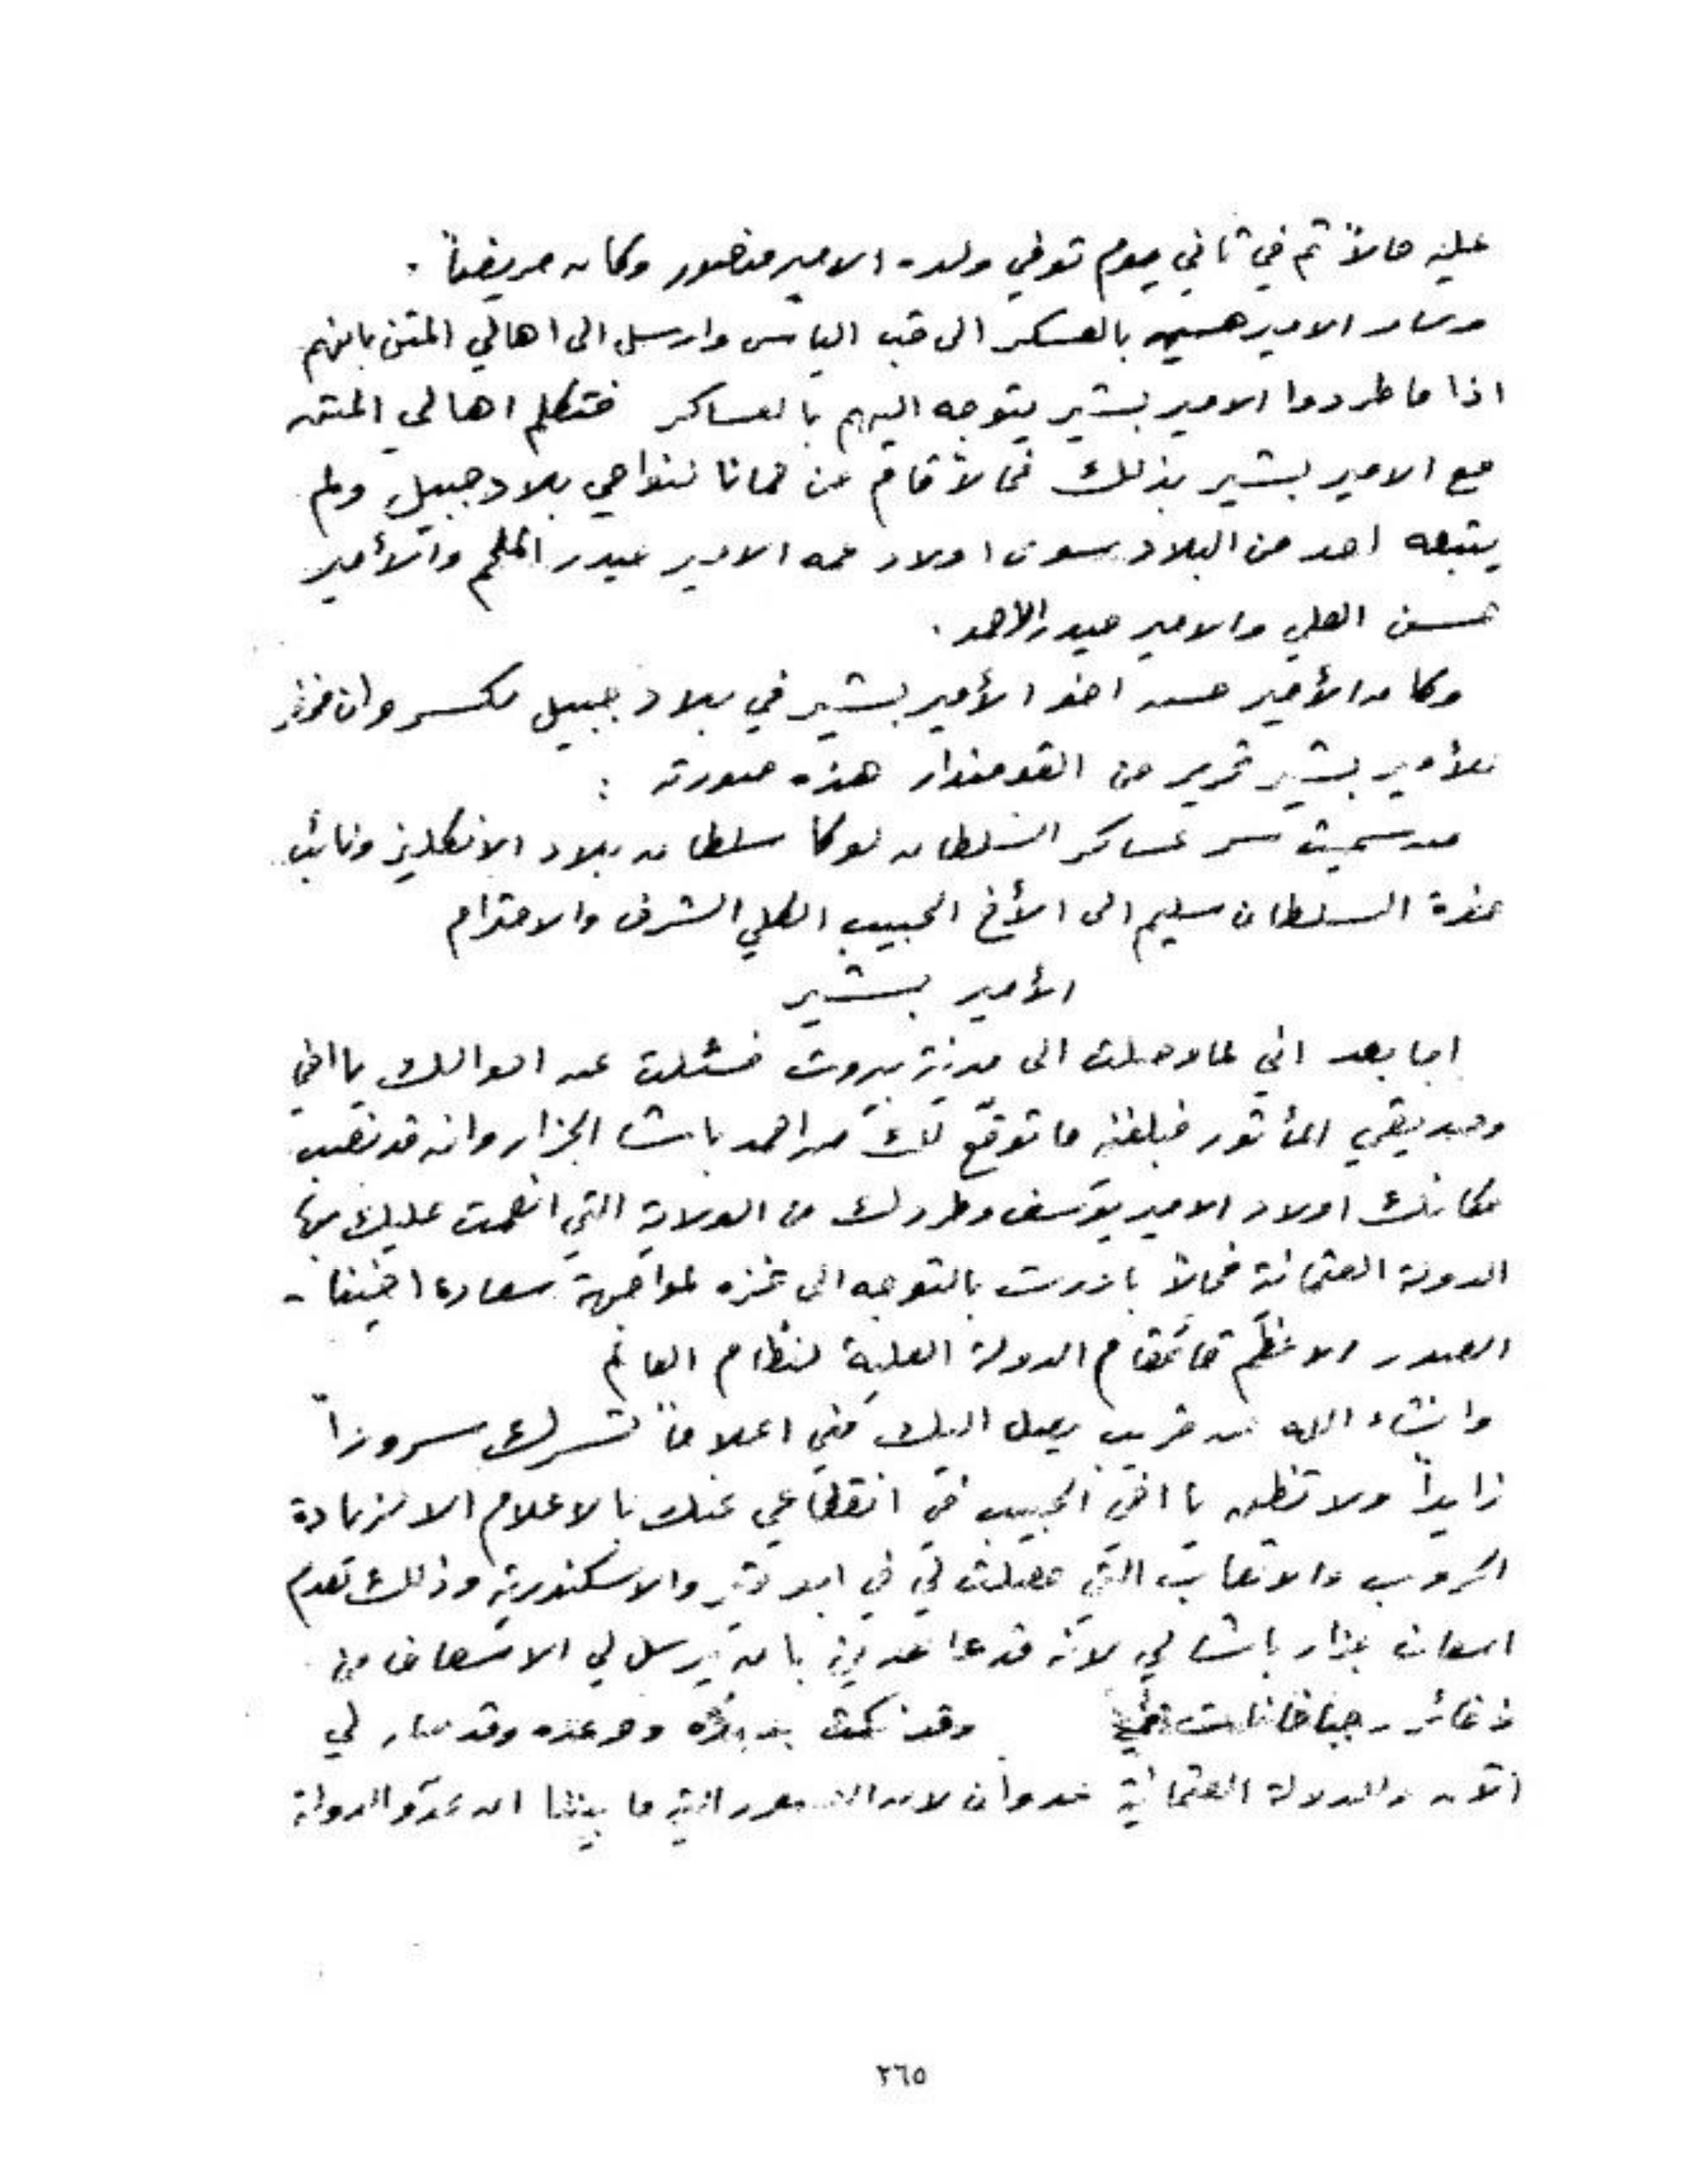 عليه حالاً ثم في ثاني يوم توفي ولده الامير منصور وكان مريضاً .
وسار الامير حسين بالعسكر الى قب الياس وارسل الى اهالي المتن بانهم
اذا ما طردوا الامير بشير يتوجه اليهم بالعساكر فتكلم اهالي المتن
مع الامير بشير بذلك فحالاً قام من حمانا لنواحي بلاد جبيل ولم
يتبعه احد من البلاد سوى اولاد عمه الامير حيدر الملحم والأمير
حسن العلي والامير حيدر الاحمد .
وكان الأمير حسن اخو الأمير بشير في بلاد جبيل وكسروان
للأمير بشير تحرير من القومندار هذه صورته :
سر عساكر السلطان لوكا سلطان بلاد الانكليز ونائب
حضرة السلطان سليم الى الأخ الحبيب الكلي الشرف والاحترام
الأمير بشير
اما بعد اني لما وصلت الى مدينة بيروت فسئلت عن احوالك يا اخي
وصديقي المأثور فبلغني ما توقّع لك من احمد باشا الجزار وانه قد نصب
مكانك اولاد الامير يوسف وطردك من الولاية التي انعمت عليك بها
الدولة العثمانية فحالاً بادرت بالتوجه الى غزه لمواجهة سعادة اخينا -
الصدر الاعظم قائمقام الدولة العلية لنظام العالم
وانشاء الله عن قريب يصل اليك مني اعلاماً تسرك سروراً
زايداً ولا تظن يا اخي الحبيب في انقطاعي عنك بالاعلام الا لزيادة
الحروب والاتعاب التي حصلت لي في ابو قير والاسكندرية وذلك لعدم
اسعاف جزار باشا لي لانه قد عاهدني بان يرسل لي الاسعاف من
ذخائر وجباخانات وقد نكث وعده وقد صار لي
الآن والدولة العثمانية عدوان لان التي ما بيننا ان عدو الدولة
٢٦٥